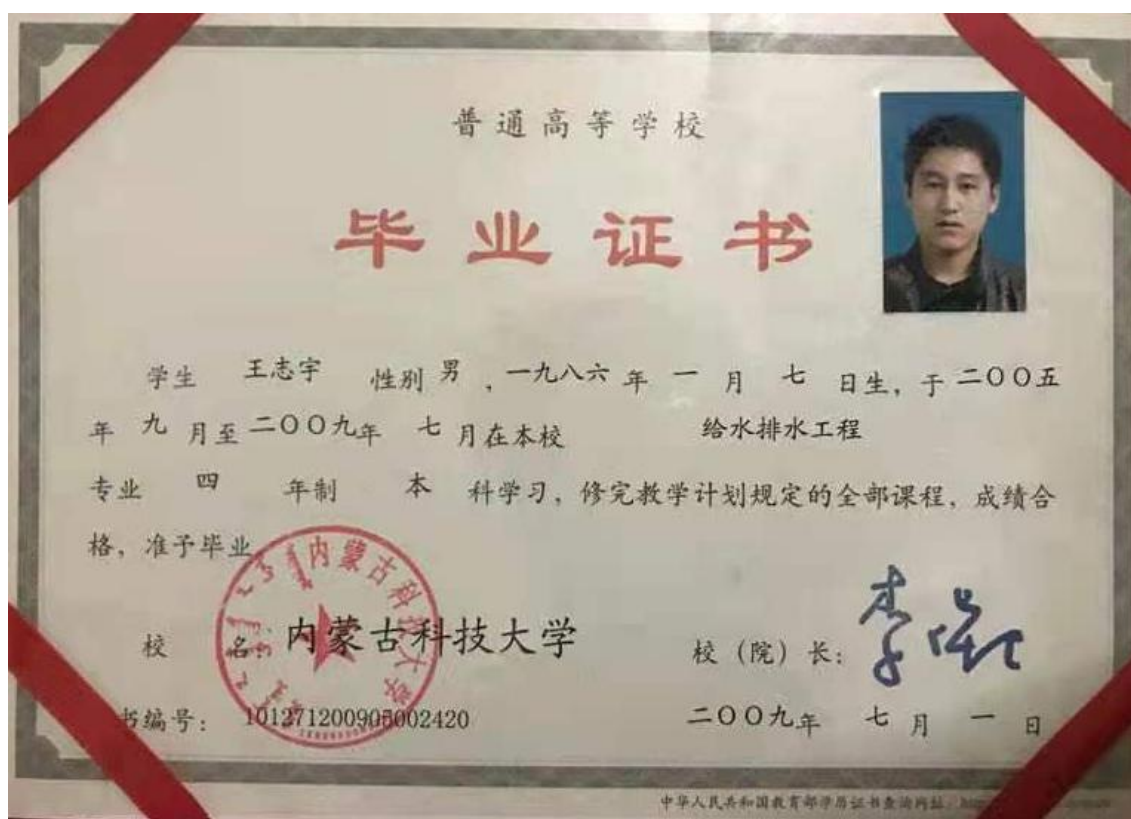 普通高等学校
毕业证书
学生 王志宇 性别 男 ，一九八六 年 一 月 七 日生，于 二〇〇五
年 九 月至 二〇〇九年 七 月在本校 给水排水工程
专业 四 年制 本 科学习，修完教学计划规定的全部课程，成绩合
格，准予毕业
内蒙古科技大学
校 名：内蒙古科技大学 校（院）长：
书编号：101271200905002420 二〇〇九年 七 月 一 日
中华人民共和国教育部学历证书查询网址：http